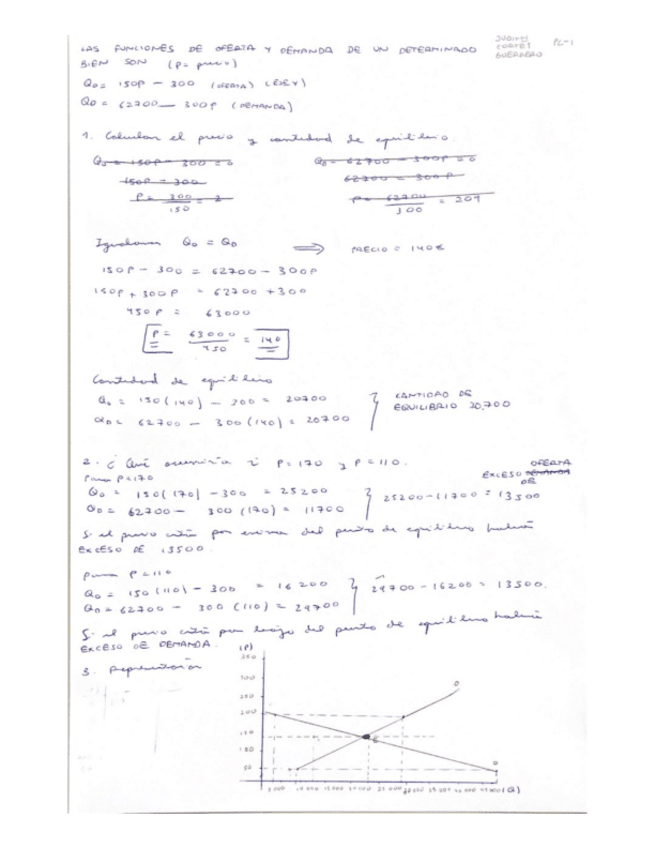 JUDITH CORTES GUERRERO
PL-1
LAS FUNCIONES DE OFERTA Y DEMANDA DE UN DETERMINADO
BIEN SON (P= precio)
Qo = 150P - 300 (OFERTA)
QD = 62700 - 300P (DEMANDA)
1. Calcular el precio y cantidad de equilibrio.
Qo = 150P - 300 = 0
QD = 62700 - 300P = 0
150P = 300
62700 = 300P
P = 300/150 = 2
P = 62700/300 = 209
Igualamos Qo = QD ⟹ PRECIO = 140€
150P - 300 = 62700 - 300P
150P + 300P = 62700 + 300
450P = 63000
P = 63000/450 = 140
Cantidad de equilibrio
Qo = 150(140) - 300 = 20700
QD = 62700 - 300(140) = 20700
CANTIDAD DE
EQUILIBRIO 20,700
2. ¿Qué ocurriría si P=170 y P=110.
Para P=170
Qo = 150(170) - 300 = 25200
QD = 62700 - 300(170) = 11700
EXCESO DEMANDA OFERTA
DE
25200 - 11700 = 13500
Si el precio está por encima del punto de equilibrio habría
EXCESO DE 13500.
Para P=110
Qo = 150(110) - 300 = 16200
QD = 62700 - 300(110) = 29700
29700 - 16200 = 13500.
Si el precio está por debajo del punto de equilibrio habría
EXCESO DE DEMANDA.
3. Representación
(P)
350
300
250
200
150
100
50
O
E
D
5 000 10 000 15 000 20 000 25 000 30 000 35 000 40 000 45 000 (Q)